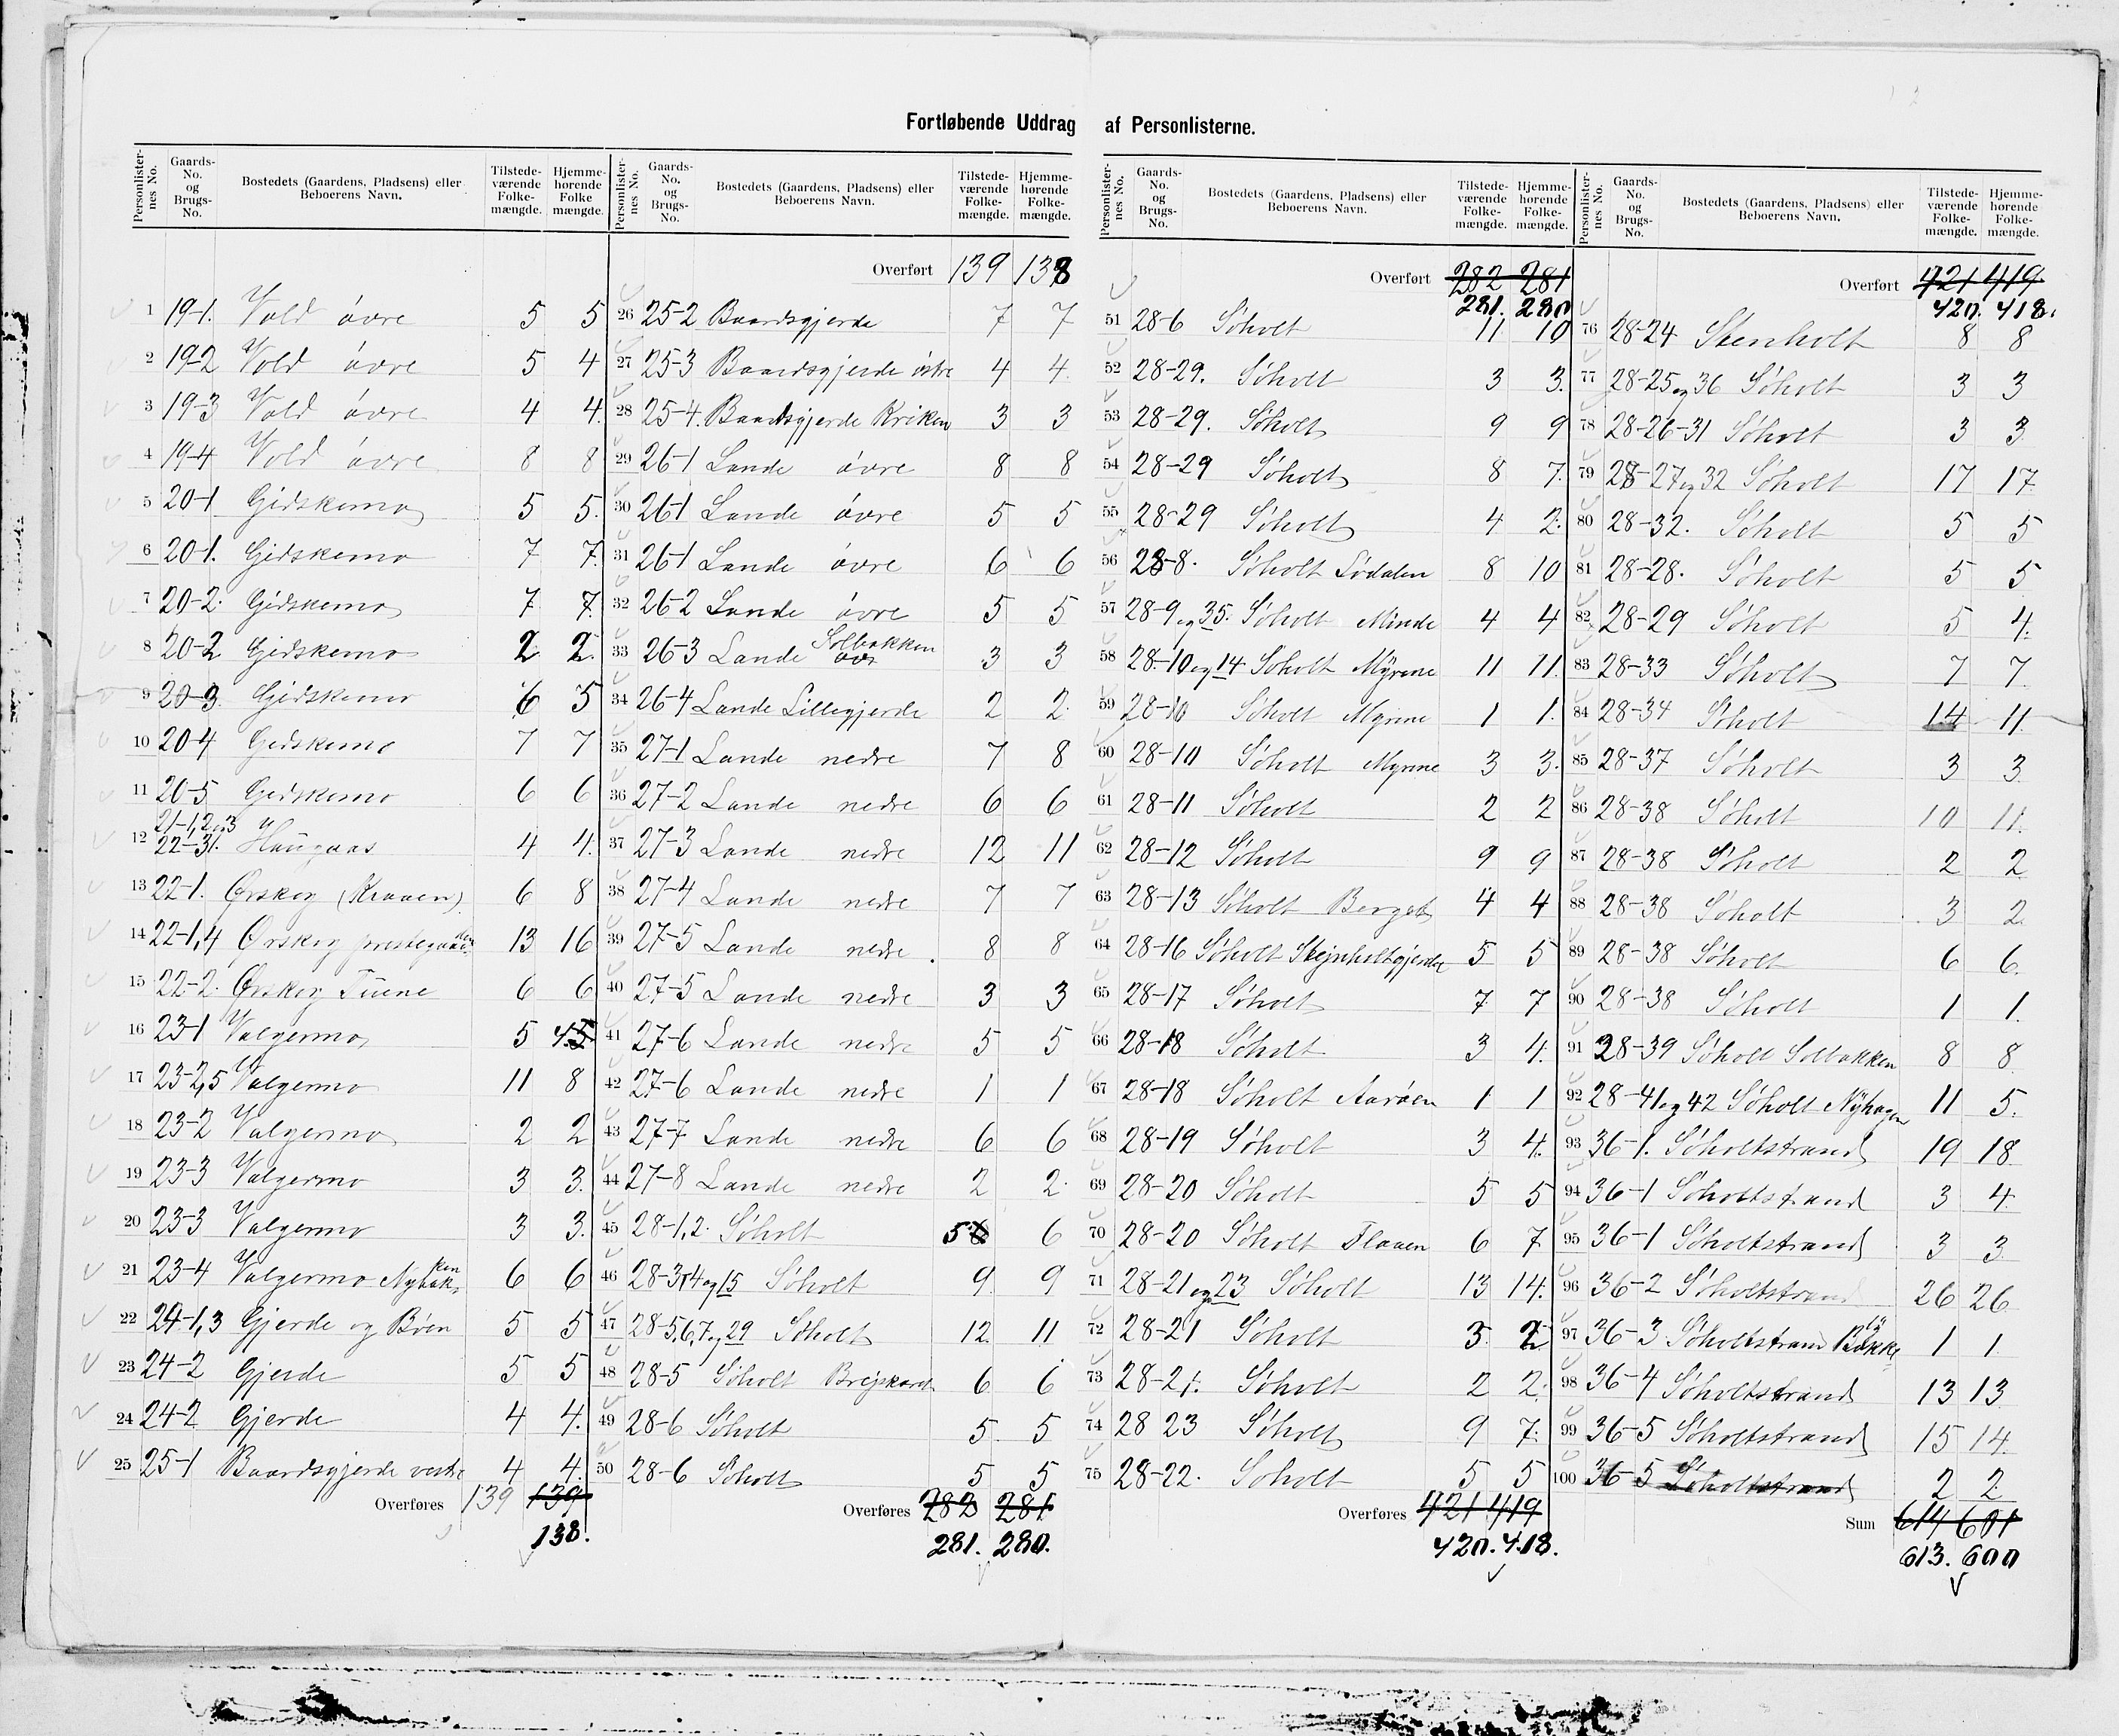 Fortløbende Uddrag af Personlisterne.
Personlister-nes No. Gaards-No. og Brugs-No. Bostedets (Gaardens, Pladsens) eller Beboerens Navn. Tilstede-værende Folke-mængde. Hjemme-hørende Folke mængde.
1 19-1. Vold øvre 5 5
2 19-2 Vold øvre 5 4
3 19-3 Vold øvre 4 4.
4 19-4 Vold øvre 8 8
5 20-1 Gidskemo 5 5.
6 20-1. Gidskemo 7 7.
7 20-2. Gidskemo 7 7.
8 20-2 Gidskemo 2 2.
9 20-3. Gidskemo 6 5
10 20-4 Gidskemo 7 7
11 20-5 Gidskemo 6 6
12 21-1,2og3 22-31. Haugaas 4 4.
13 22-1. Ørskog (Kraaen) 6 8
14 22-1,4 Ørskog prestegaarden 13 16
15 22-2. Ørskog Tuene 6 6
16 23-1 Valgermo 5 4.5
17 23-2,5 Valgermo 11 8
18 23-2 Valgermo 2 2
19 23-3 Valgermo 3 3.
20 23-3 Valgermo 3 3.
21 23-4 Valgermo Nybakken 6 6
22 24-1,3 Gjerde og Bøen 5 5
23 24-2 Gjerde 5 5
24 24-2 Gjerde 4 4.
25 25-1 Baardsgjerde vestre 4 4.
Overføres 139 139
138.
Personlister-nes No. Gaards-No. og Brugs-No. Bostedets (Gaardens, Pladsens) eller Beboerens Navn. Tilstede-værende Folke-mængde. Hjemme-hørende Folke-mængde.
Overført 139 138
26 25-2 Baardsgjerde 7 7
27 25-3 Baardsgjerde østre 4 4
28 25-4. Baardsgjerde Kriken 3 3
29 26-1 Lande øvre 8 8
30 26-1 Lande øvre 5 5
31 26-1 Lande øvre 6 6
32 26-2 Lande øvre 5 5
33 26-3 Lande øvr Solbakken 3 3
34 26-4 Lande Lillegjerde 2 2.
35 27-1 Lande nedre 7 8
36 27-2 Lande nedre 6 6
37 27-3 Lande nedre 12 11
38 27-4 Lande nedre 7 7
39 27-5 Lande nedre. 8 8
40 27-5 Lande nedre 3 3
41 27-6 Lande nedre 5 5
42 27-6 Lande nedre 1 1
43 27-7 Lande nedre 6 6
44 27-8 Lande nedre 2 2.
45 28-1,2. Søholt 5 6 6
46 28-3,4og15 Søholt 9 9
47 28-5,6,7og29 Søholt 12 11
48 28-5 Søholt 6 6
49 28-6 Søholt 5 5
50 28-6 Søholt 5 5
Overføres 282 281
281. 280.
Personlister-nes No. Gaards-No. og Brugs-No. Bostedets (Gaardens, Pladsens) eller Beboerens Navn. Tilstede-værende Folke-mængde. Hjemme-hørende Folke-mængde.
Overført 282 281
281. 280
51 28-6 Søholt 11 10
52 28-29. Søholt 3 3.
53 28-29. Søholt 9 9
54 28-29 Søholt 8 7.
55 28-29 Søholt 4 2.
56 28-8. Søholt Lødalen 8 10
57 28-9og35. Søholt Minde 4 4
58 28-10og14 Søholt Myrene 11 11.
59 28-10 Søholt Myrene 1 1.
60 28-10 Søholt Myrene 3 3.
61 28-11 Søholt 2 2
62 28-12 Søholt 9 9
63 28-13 Søholt Berget 4 4
64 28-16 Søholt Stejnholtgjerde 5 5
65 28-17 Søholt 7 7
66 28-18 Søholt 3 4.
67 28-18 Søholt Aarøen 1 1
68 28-19 Søholt 3 4.
69 28-20 Søholt 5 5
70 28-20 Søholt Flaaen 6 7
71 28-21og23 Søholt 13 14.
72 28-21 Søholt 3. 2
73 28-21. Søholt 2 2.
74 28 23 Søholt 9 7.
75 28-22. Søholt 5 5
Overføres 421 419
420. 418.
Personlister-nes No. Gaards-No. og Brugs-No. Bostedets (Gaardens, Pladsens) eller Beboerens Navn. Tilstede-værende Folke-mængde. Hjemme-hørende Folke-mængde.
Overført 421 419
420. 418.
76 28-24 Stenholt 8 8
77 28-25og36 Søholt 3 3
78 28-26-31 Søholt 3 3
79 28-27og32 Søholt 17 17
80 28-32. Søholt 5 5
81 28-28. Søholt 5 5
82 28-29 Søholt 5 4.
83 28-33 Søholt 7 7.
84 28-34 Søholt 14 11.
85 28-37 Søholt 3 3
86 28-38 Søholt 10 11.
87 28-38 Søholt 2 2
88 28-38 Søholt 3 2
89 28-38 Søholt 6 6.
90 28-38 Søholt 1 1.
91 28-39 Søholt Solbakken 8 8
92 28-41og42 Søholt Nyhagen 11 5.
93 36-1. Søholtstrand 19 18
94 36-1 Søholtstrand 3 4.
95 36-1 Søholtstrand 3 3
96 36-2 Søholtstrand 26 26
97 36-3 Søholtstrand 1 1
98 36-4 Søholtstrand 13 13
99 36-5 Søholtstrand 15 14.
100 36-5 Søholtstrand 2 2
Sum 614 601
613. 600